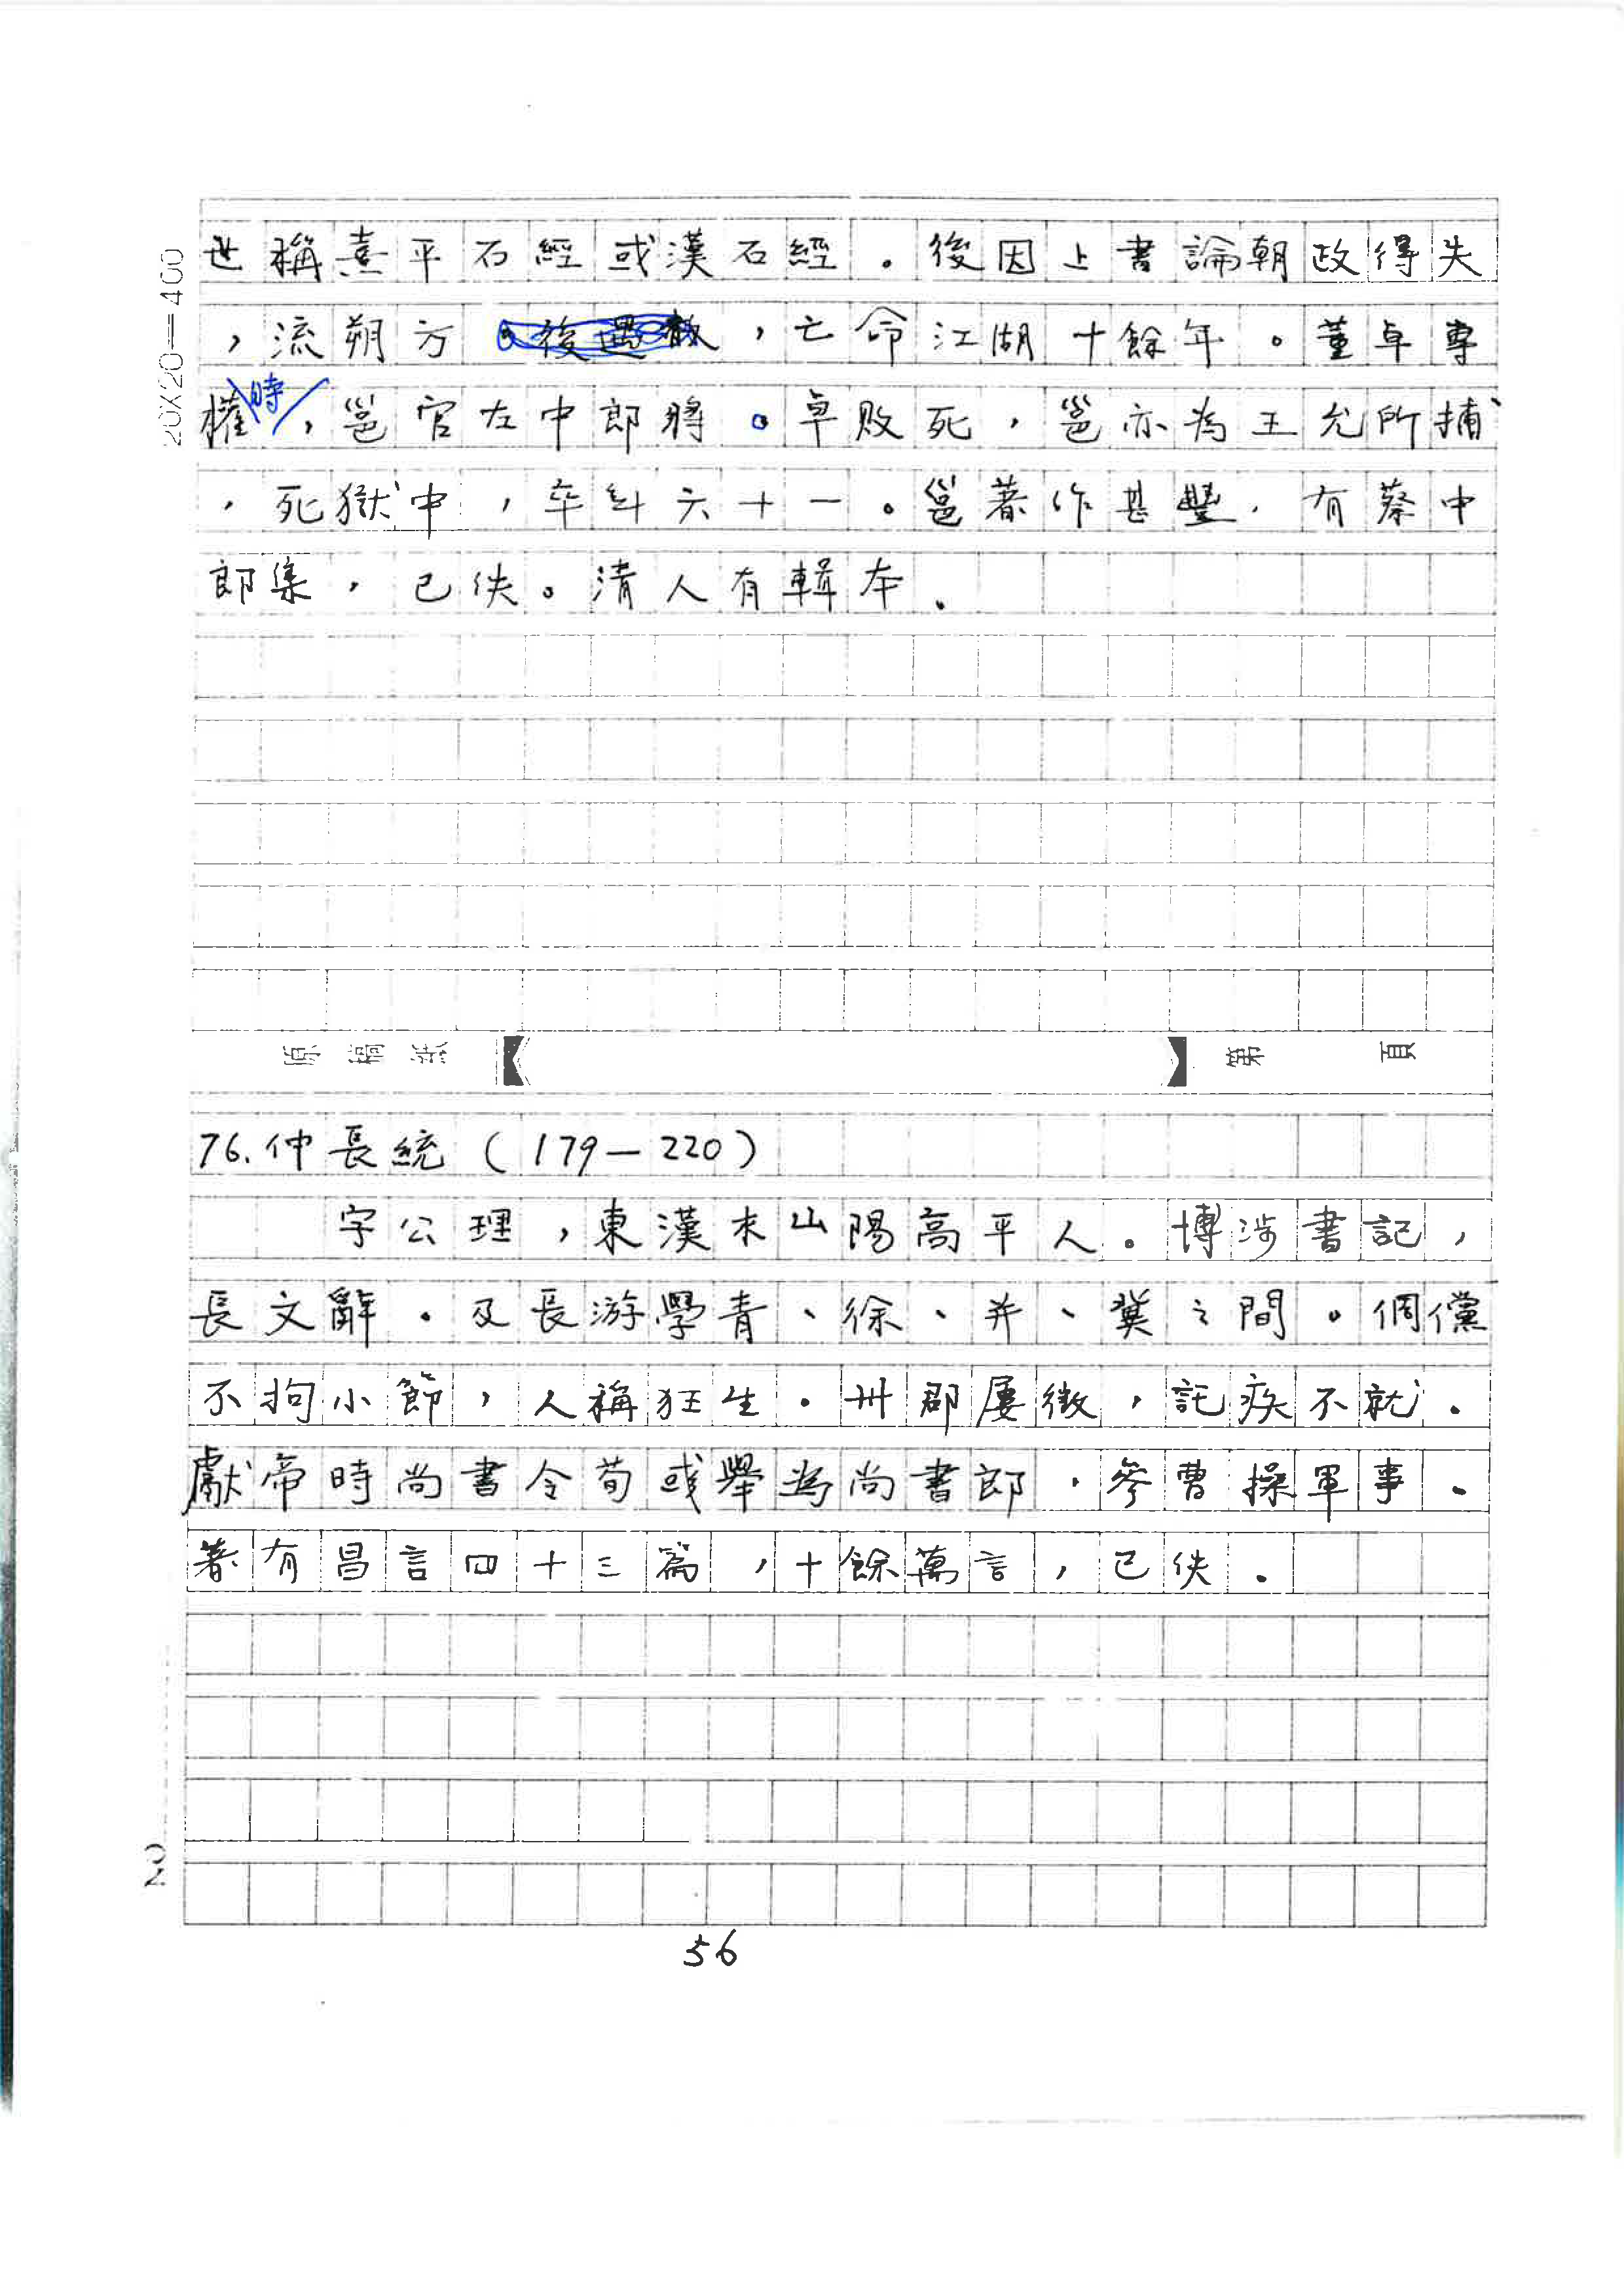 世稱熹平石經或漢石經。後因上書論朝政得失
，流朔方，亡命江湖十餘年。董卓專
權時，邕官左中郎將。卓敗死，邕亦為王允所捕
，死獄中，卒年六十一。邕著作甚豐，有蔡中
郎集，已佚。清人有輯本。
20X20=400
原稿紙 第 頁
76.仲長統（179－220）
字公理，東漢末山陽高平人。博涉書記，
長文辭。及長游學青、徐、并、冀之間。倜儻
不拘小節，人稱狂生。州郡屢徵，託疾不就。
獻帝時尚書令荀彧舉為尚書郎，參曹操軍事。
著有昌言四十三篇，十餘萬言，已佚。
56